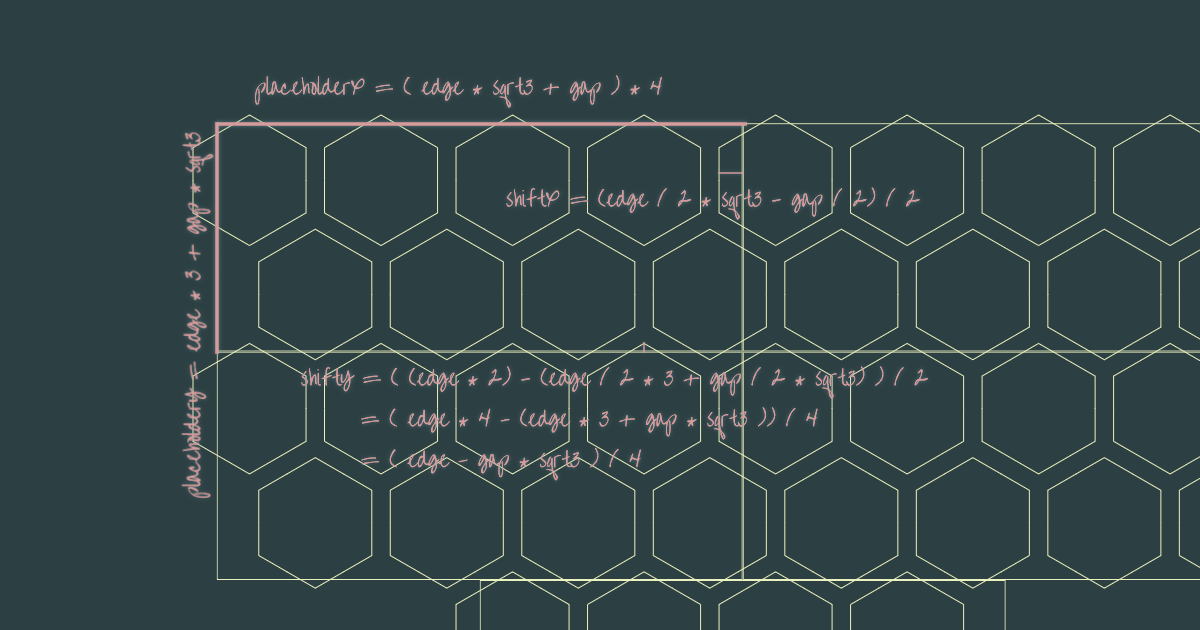 placeholderX = ( edge * sqrt3 + gap ) * 4
placeholdery = edge * 3 + gap * sqrt3
shiftX = (edge / 2 * sqrt3 - gap / 2) / 2
shifty = ( (edge * 2) - (edge / 2 * 3 + gap / 2 * sqrt3) ) / 2
= ( edge * 4 - (edge * 3 + gap * sqrt3 )) / 4
= ( edge - gap * sqrt3 ) / 4